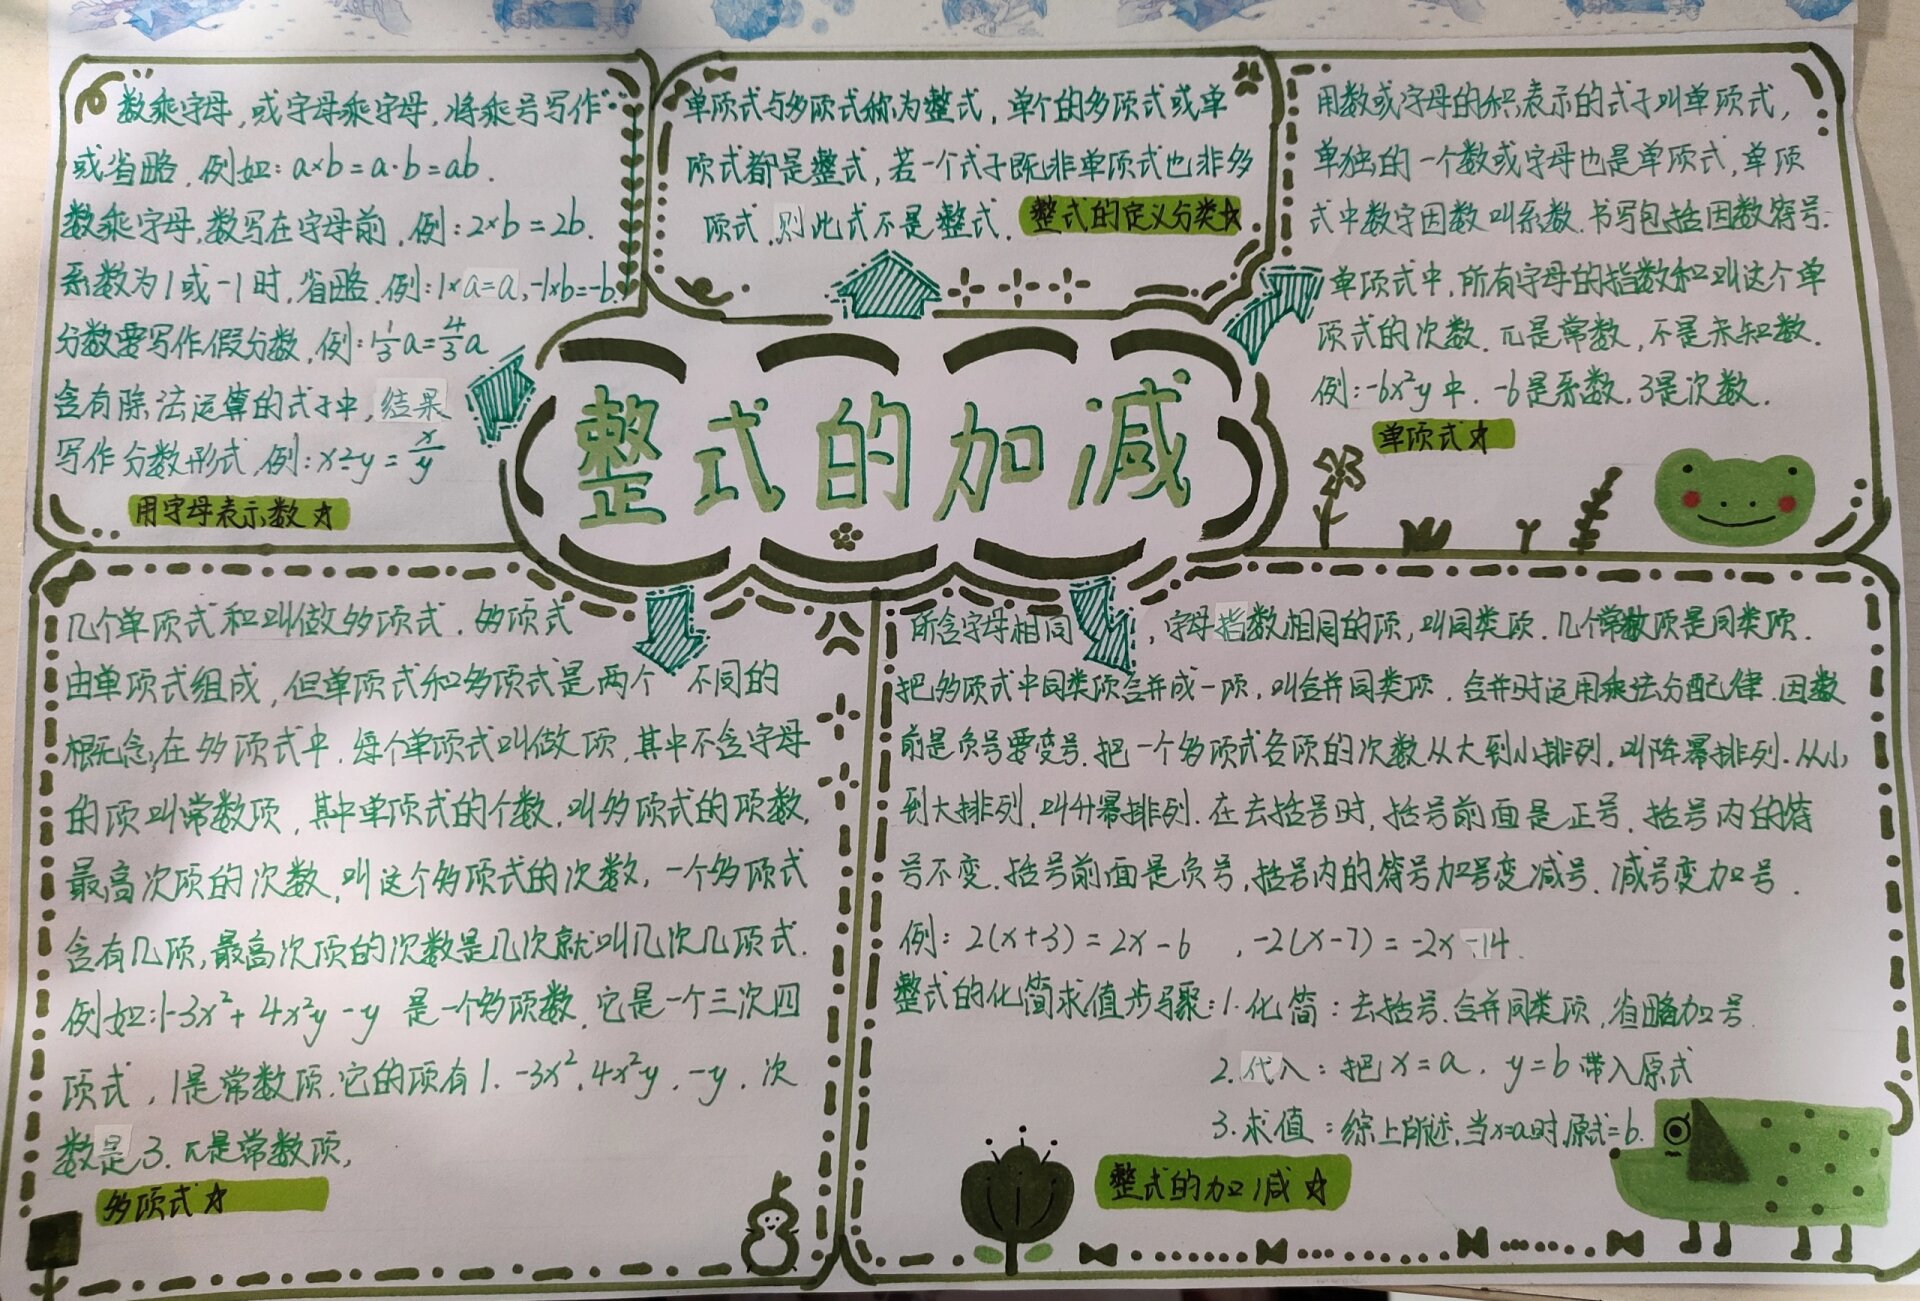 数乘字母,或字母乘字母,将乘号写作"·"
或省略.例如:a×b=a·b=ab.
数乘字母,数写在字母前,例:2×b=2b.
系数为1或-1时,省略.例:1×a=a,-1×b=-b.
分数要写作假分数,例:1⅓a=4/3a
含有除法运算的式子中,结果
写作分数形式.例:x÷y=x/y
用字母表示数☆
单项式与多项式称为整式,单个的多项式或单
项式都是整式,若一个式子既非单项式也非多
项式.则此式不是整式.
整式的定义分类☆
用数或字母的积表示的式子叫单项式,
单独的一个数或字母也是单项式,单项
式中数字因数叫系数.书写包括因数符号.
单项式中,所有字母的指数和叫这个单
项式的次数.π是常数,不是未知数.
例:-6x²y中.-6是系数,3是次数.
单项式☆
整式的加减
几个单项式和叫做多项式.多项式
由单项式组成,但单项式和多项式是两个不同的
概念,在多项式中.每个单项式叫做项,其中不含字母
的项叫常数项,其中单项式的个数,叫多项式的项数,
最高次项的次数,叫这个多项式的次数,一个多项式
含有几项,最高次项的次数是几次就叫几次几项式.
例如:1-3x²+4x²y-y 是一个多项数,它是一个三次四
项式,1是常数项.它的项有1.-3x².4x²y.-y.次
数是3.π是常数项,
多项式☆
所含字母相同,字母指数相同的项,叫同类项.几个常数项是同类项.
把多项式中同类项合并成一项,叫合并同类项.合并时运用乘法分配律.因数
前是负号要变号.把一个多项式各项的次数从大到小排列,叫降幂排列.从小
到大排列,叫升幂排列.在去括号时,括号前面是正号,括号内的符
号不变.括号前面是负号,括号内的符号加号变减号.减号变加号.
例:2(x+3)=2x-6 ,-2(x-7)=-2x-14.
整式的化简求值步骤:1.化简:去括号.合并同类项,省略加号.
2.代入:把x=a.y=b带入原式
3.求值:综上所述,当x=a时,原式=b.
整式的加减☆